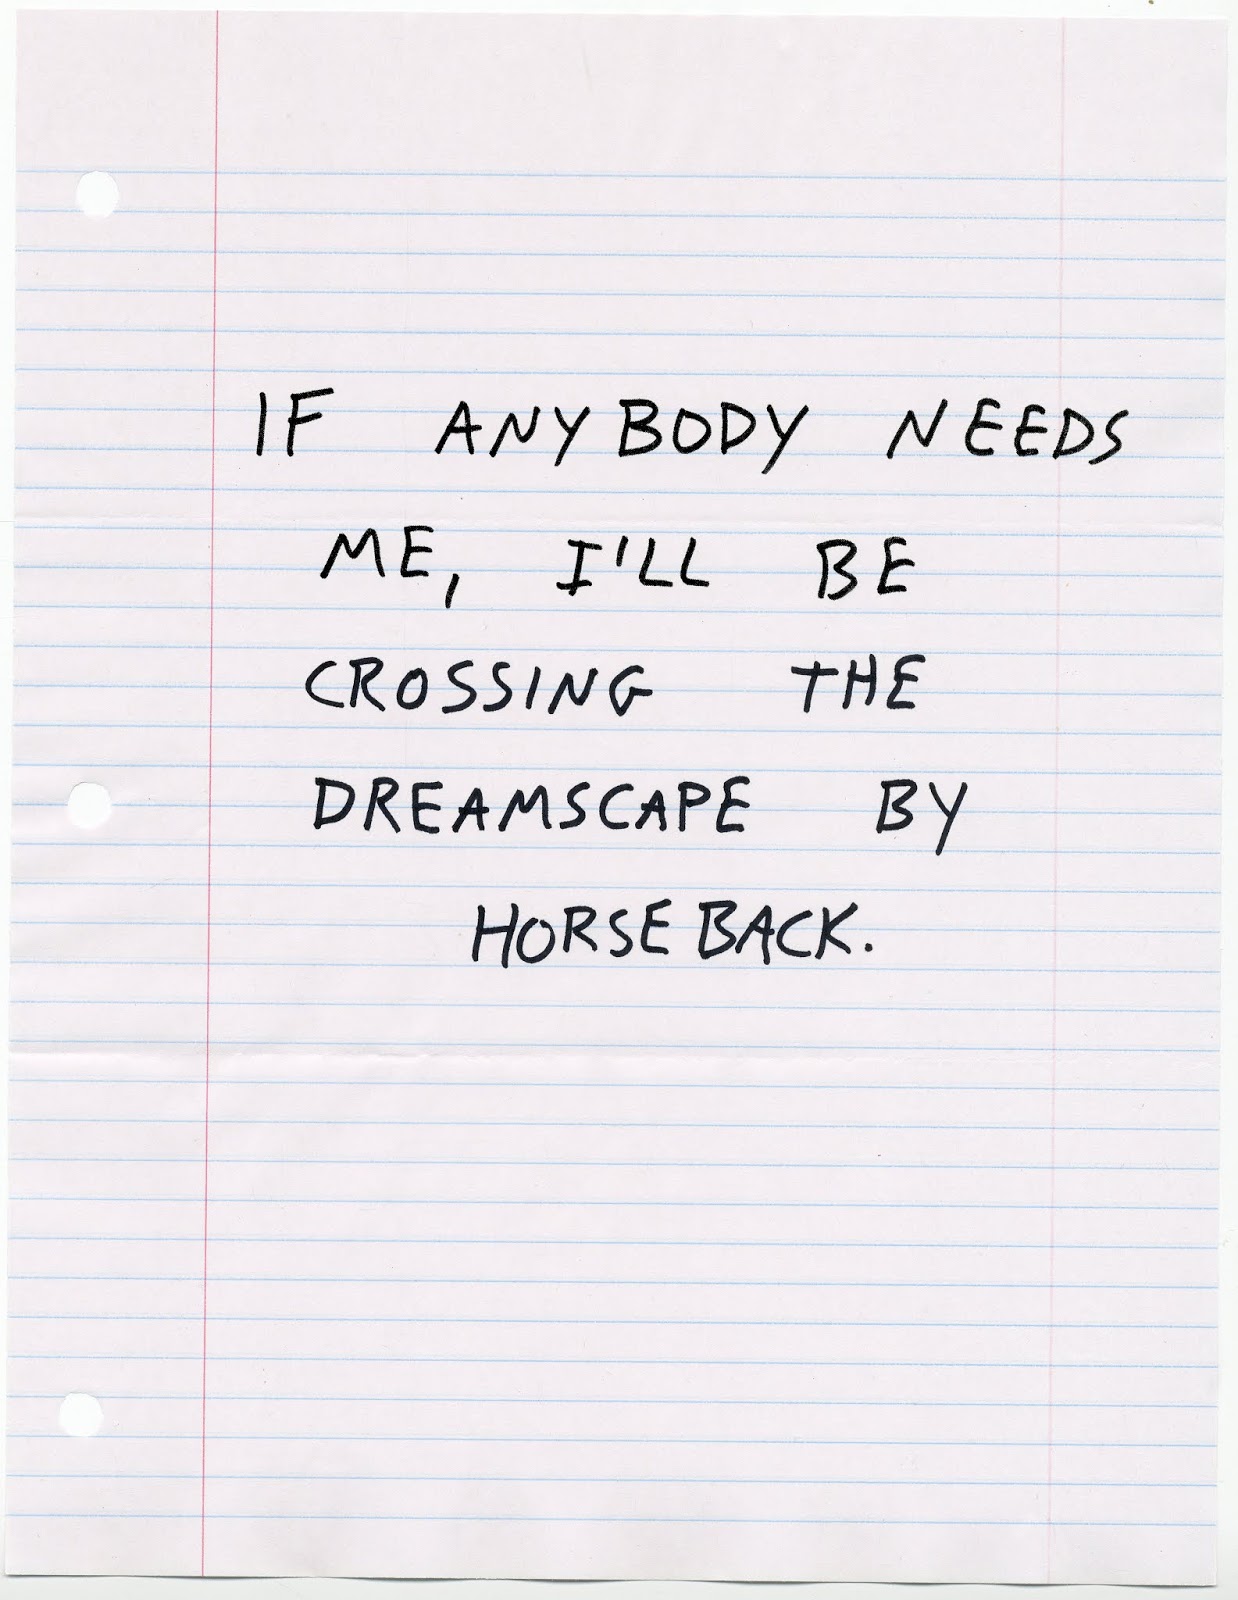 IF ANYBODY NEEDS
ME, I'LL BE
CROSSING THE
DREAMSCAPE BY
HORSEBACK.